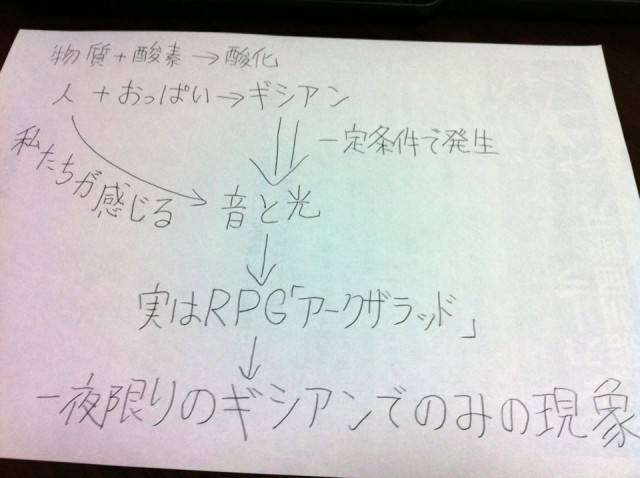 物質+酸素→酸化
人+おっぱい→ギシアン
一定条件で発生
私たちが感じる
音と光
実はRPG「アークザラッド」
一夜限りのギシアンでのみの現象